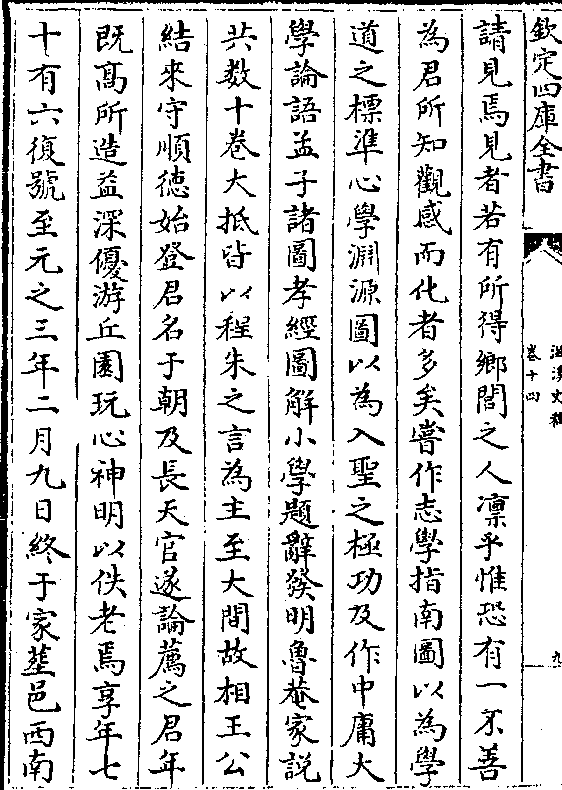 欽定四庫全書
滋溪文稿
卷十四
九
請見焉見者若有所得鄉閭之人凛乎惟恐有一不善
為君所知觀感而化者多矣嘗作志學指南圖以為學
道之標準心學淵源圖以為入聖之極功及作中庸大
學論語孟子諸圖孝經圖解小學題辭發明魯菴家説
共數十卷大抵皆以程朱之言為主至大間故相王公
結來守順德始登君名于朝及長天官遂論薦之君年
既髙所造益深優游丘園玩心神明以佚老焉享年七
十有六復號至元之三年二月九日終于家塟邑西南